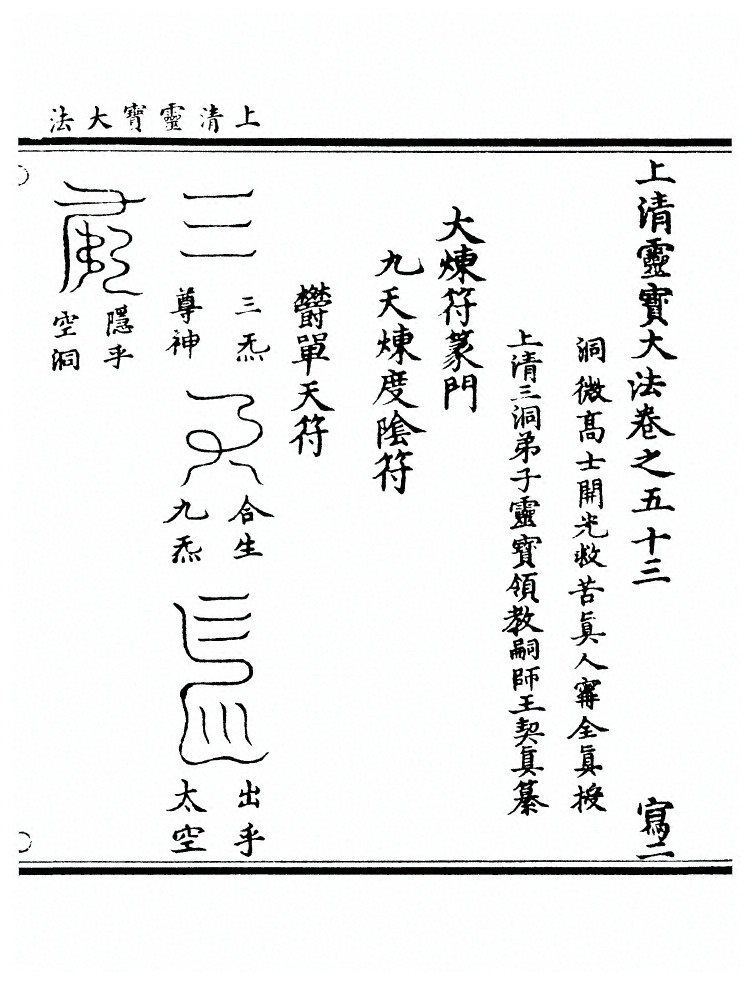 上清靈寶大法
上清靈寶大法卷之五十三　寫二
洞微高士開光救苦眞人甯全眞授
上清三洞弟子靈寶領教嗣師王契眞纂
大煉符篆門
九天煉度陰符
欝單天符
三炁
尊神
合生
九炁
出乎
太空
隱乎
空洞